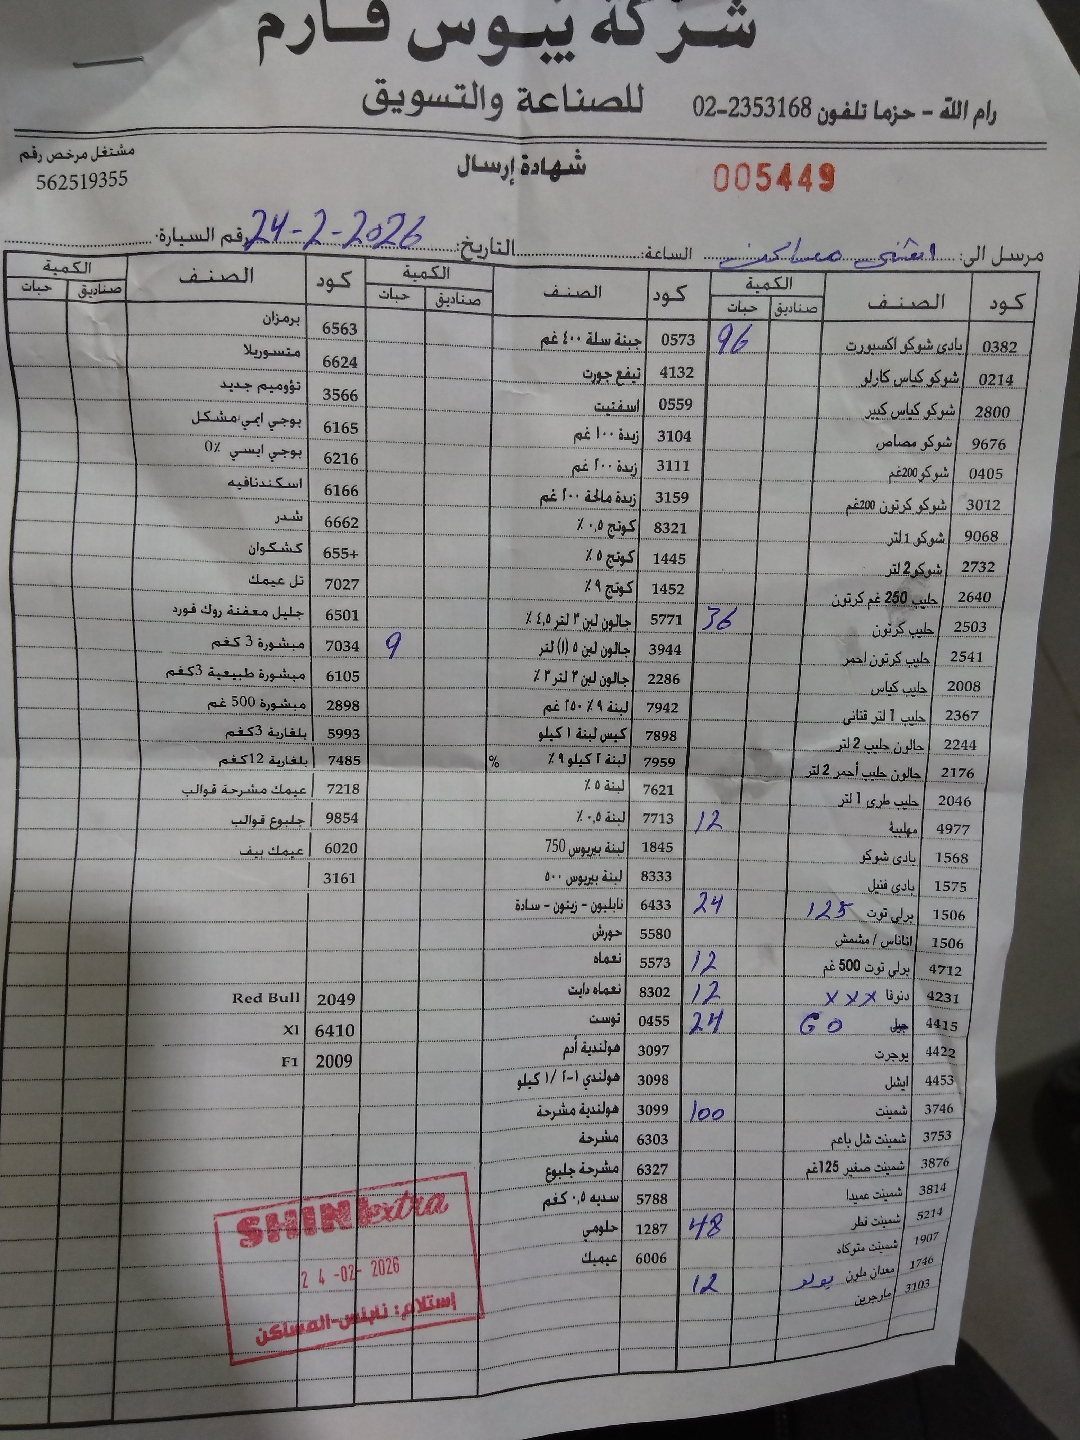 شركة بيوس فارم
للصناعة والتسويق
رام الله - حزما تلفون 02-2353168
مشتغل مرخص رقم
562519355
شهادة إرسال
005449
مرسل الى: مساكن الساعة: التاريخ: 24-2-2026 رقم السيارة:
كود الصنف الكمية كود الصنف الكمية كود الصنف الكمية
صناديق حبات صناديق حبات صناديق حبات
0382 بادي شوكو اكسبورت 96
0214 شوكو كياس كارلو
2800 شوكو كياس كبير
9676 شوكو مصاص
0405 شوكو 200غم
3012 شوكو كرتون 200غم
9068 شوكو 1 لتر
2732 شوكو 2 لتر
2640 حليب 250 غم كرتون
2503 حليب كرتون 36
2541 حليب كرتون احمر
2008 حليب كياس
2367 حليب 1 لتر قناني
2244 جالون حليب 2 لتر
2176 جالون حليب أحمر 2 لتر
2046 حليب طري 1 لتر
4977 مهلبية 12
1568 بادي شوكو
1575 بادي فنيل
1506 برلي توت 125 24
1506 اناناس / مشمش
4712 برلي توت 500 غم 12
4231 دنوفا xxx 12
4415 جيلي GO 24
4422 يوجرت
4453 ايشل
3746 شمينت 100
3753 شمينت شل باعم
3876 شمينت صغير 125غم
3814 شمينت عميدا
5214 شمينت نطر 48
1907 شمينت متوكاه
1746 معدان ملون يولو 12
3103 مارجرين
0573 جبنة سلة ٤٠٠ غم
4132 تيفع جورت
0559 اسفتيت
3104 زبدة ١٠٠ غم
3111 زبدة ٢٠٠ غم
3159 زبدة مالحة ٢٠٠ غم
8321 كوتج ٠,٥ ٪
1445 كوتج ٥ ٪
1452 كوتج ٩ ٪
5771 جالون لبن ٣ لتر ٤,٥ ٪
3944 جالون لبن ٥ (١) لتر 9
2286 جالون لبن ٣ لتر ٣ ٪
7942 لبنة ٩ ٪ ٢٥٠ غم
7898 كيس لبنة ١ كيلو
7959 لبنة ٢ كيلو ٩ ٪ %
7621 لبنة ٥ ٪
7713 لبنة ٠,٥ ٪
1845 لبنة بيريوس 750
8333 لبنة بيريوس ٥٠٠
6433 نابليون - زيتون - سادة
5580 حورش
5573 نعماه
8302 نعماه دايت
0455 توست
3097 هولندية أدم
3098 هولندي ١-٢ / ١ كيلو
3099 هولندية مشرحة
6303 مشرحة
6327 مشرحة جلبوع
5788 سديه ٠,٥ كغم
1287 حلومي
6006 عيميك
6563 برمزان
6624 متسوريلا
3566 تؤوميم جديد
6165 بوجي ايمي/مشكل
6216 بوجي ايسي 0٪
6166 اسكندنافيه
6662 شدر
655+ كشكوان
7027 تل عيمك
6501 جليل معفنة روك فورد
7034 مبشورة 3 كغم
6105 مبشورة طبيعية 3كغم
2898 مبشورة 500 غم
5993 بلغارية 3كغم
7485 بلغارية 12كغم
7218 عيمك مشرحة قوالب
9854 جلبوع قوالب
6020 عيمك بيف
3161
2049 Red Bull
6410 Xl
2009 F1
SHINI extra
24-02-2026
إستلام: نابلس-المساكن